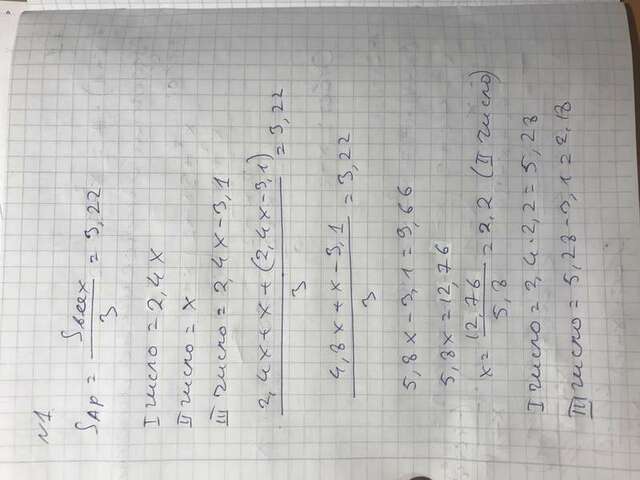 №1
Sар = Sвсех/3 = 3,22
I число = 2,4x
II число = x
III число = 2,4x-3,1
2,4x+x+(2,4x-3,1)/3 = 3,22
4,8x+x-3,1/3 = 3,22
5,8x-3,1=9,66
5,8x=12,76
x=12,76/5,8=2,2 (II число)
I число = 2,4·2,2=5,28
III число=5,28-3,1=2,18